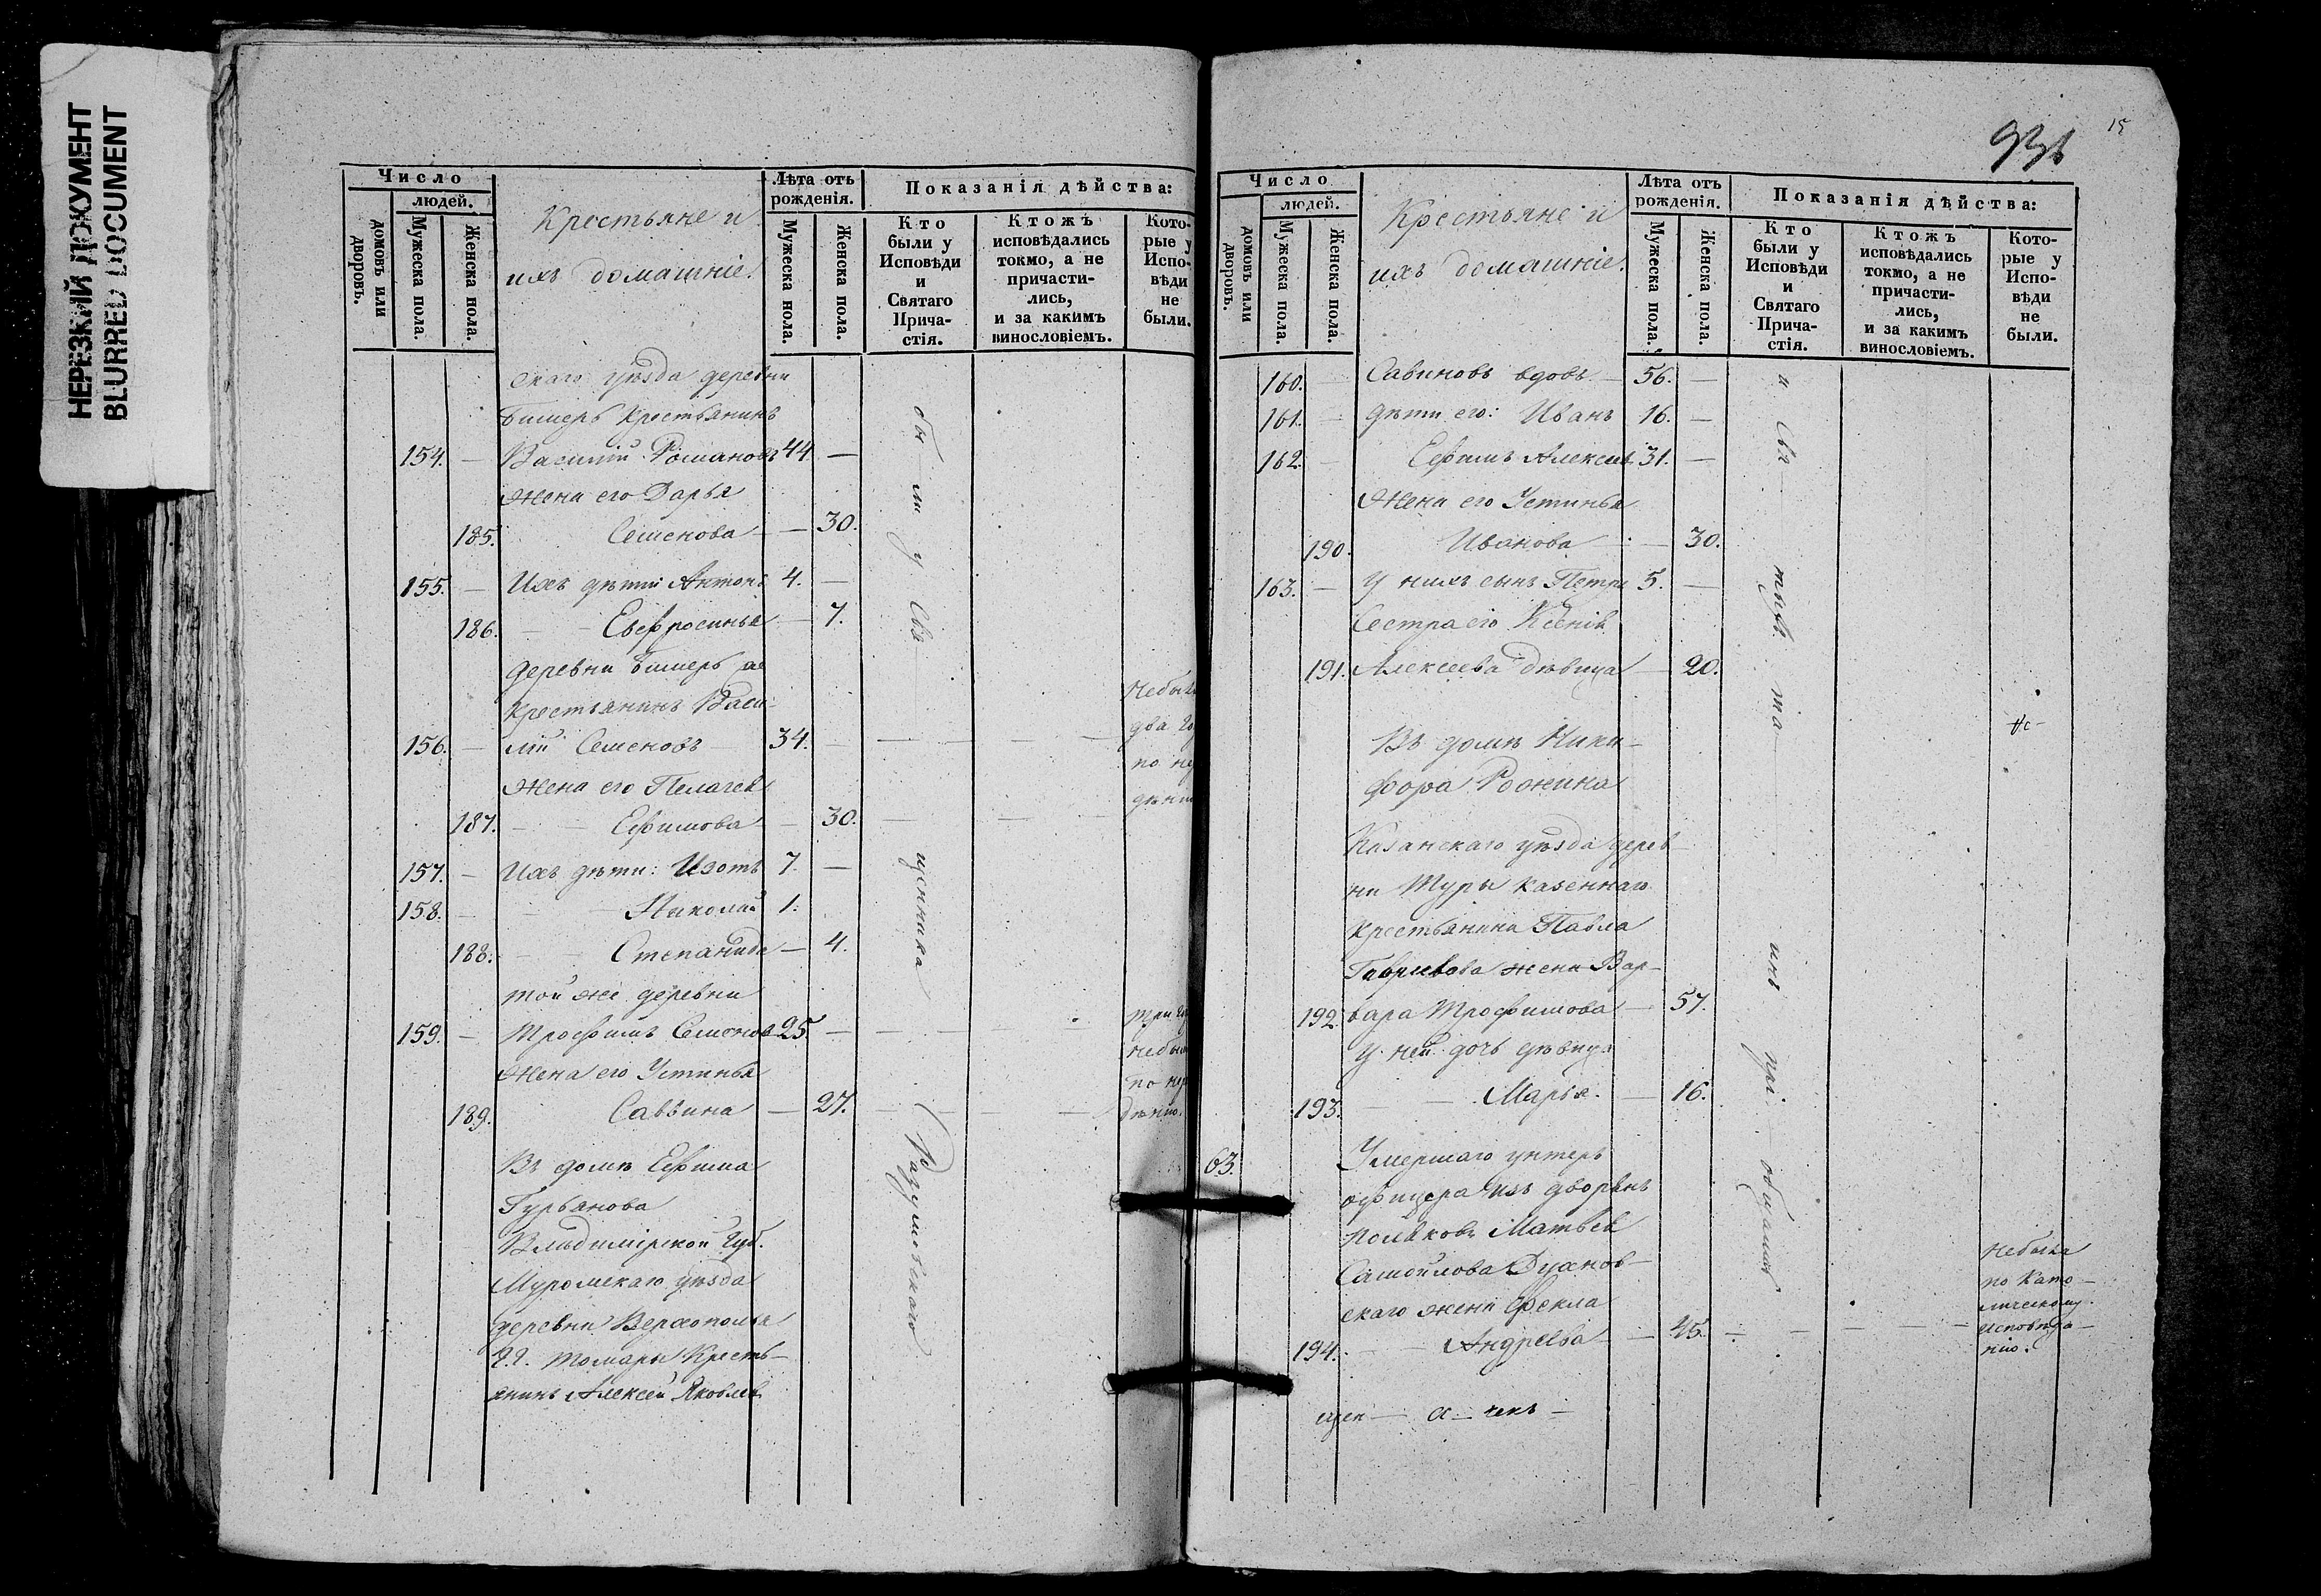 НЕРЕЗКИЙ ДОКУМЕНТ
BLURRED DOCUMENT
Число
людей.
домовъ или дворовъ.
Мужеска пола.
Женска пола.
Крестьяне и
ихъ домашніе.
Лѣта отъ рожденія.
Мужеска пола.
Женска пола.
Показанія дѣйства:
Кто были у Исповѣди и Святаго Прича-стія.
Ктожъ исповѣдались токмо, а не причасти-лись, и за какимъ винословіемъ.
Кото-рые у Испо-вѣди не были.
скаго уѣзда деревни
Бимерь Крестьянинъ
154. — Василій Романовъ 44. —
жена его Дарья
185. Семенова — 30.
155. — Ихъ дѣти Антонъ 4. —
186. — — Евфросинья — 7.
деревни Бимерь
Крестьянинъ Васи-
156. — лій Семеновъ — 34. —
жена его Пелагея
187. — — Ефимова — 30.
157. — Ихъ дѣти: Изотъ 7. —
158. — — Николай 1.
188. — — Степанида — 4.
той же деревни
159. — Трофимъ Семеновъ 25. —
жена его Устинья
189. Саввина — 27.
Въ домѣ Ефима
Гурьянова
Владимірской Губ.
Муромскаго уѣзда
деревни Верхополья
Крестья-
янинъ Алексей Яковлев
бы ли у Свя
щенника
Разумовскаго
Небыл
два го
по не
Три
небыл
по не
дѣнію.
936
15
Число
людей.
домовъ или дворовъ.
Мужеска пола.
Женска пола.
Крестьяне и
ихъ домашніе.
Лѣта отъ рожденія.
Мужеска пола.
Женска пола.
Показанія дѣйства:
Кто были у Исповѣди и Святаго Прича-стія.
Ктожъ исповѣдались токмо, а не причасти-лись, и за какимъ винословіемъ.
Кото-рые у Испо-вѣди не были.
160. — Савиновъ вдовъ — 56. —
161. — дѣти его: Иванъ 16. —
162. — Ефимъ Алексеев 31. —
жена его Устинья
190. Иванова — 30.
163. — у нихъ сынъ Петръ 5. —
Сестра его Ксенія
191. Алексеева дѣвица — 20.
Въ домѣ Ники-
фора Рожина
Казанскаго уѣзда дерев-
ни Туры казеннаго
Крестьянина Павла
Гаврилова жена Вар-
192. вара Трофимова — 57.
у ней дочь дѣвица
193. — Марья. — 16.
63. Умершаго унтеръ
офицера изъ дворянъ
поляковъ Матвея
Самойлова Духнов-
скаго жена Фекла
194. — — Андреева — 45. — — — —
Небыла
по Като-
лическому
исповѣда-
нію.